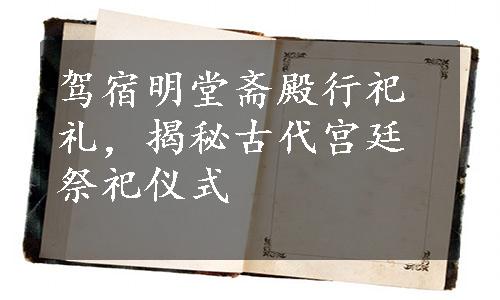 驾宿明堂斋殿行祀
礼，揭秘古代宫廷
祭祀仪式